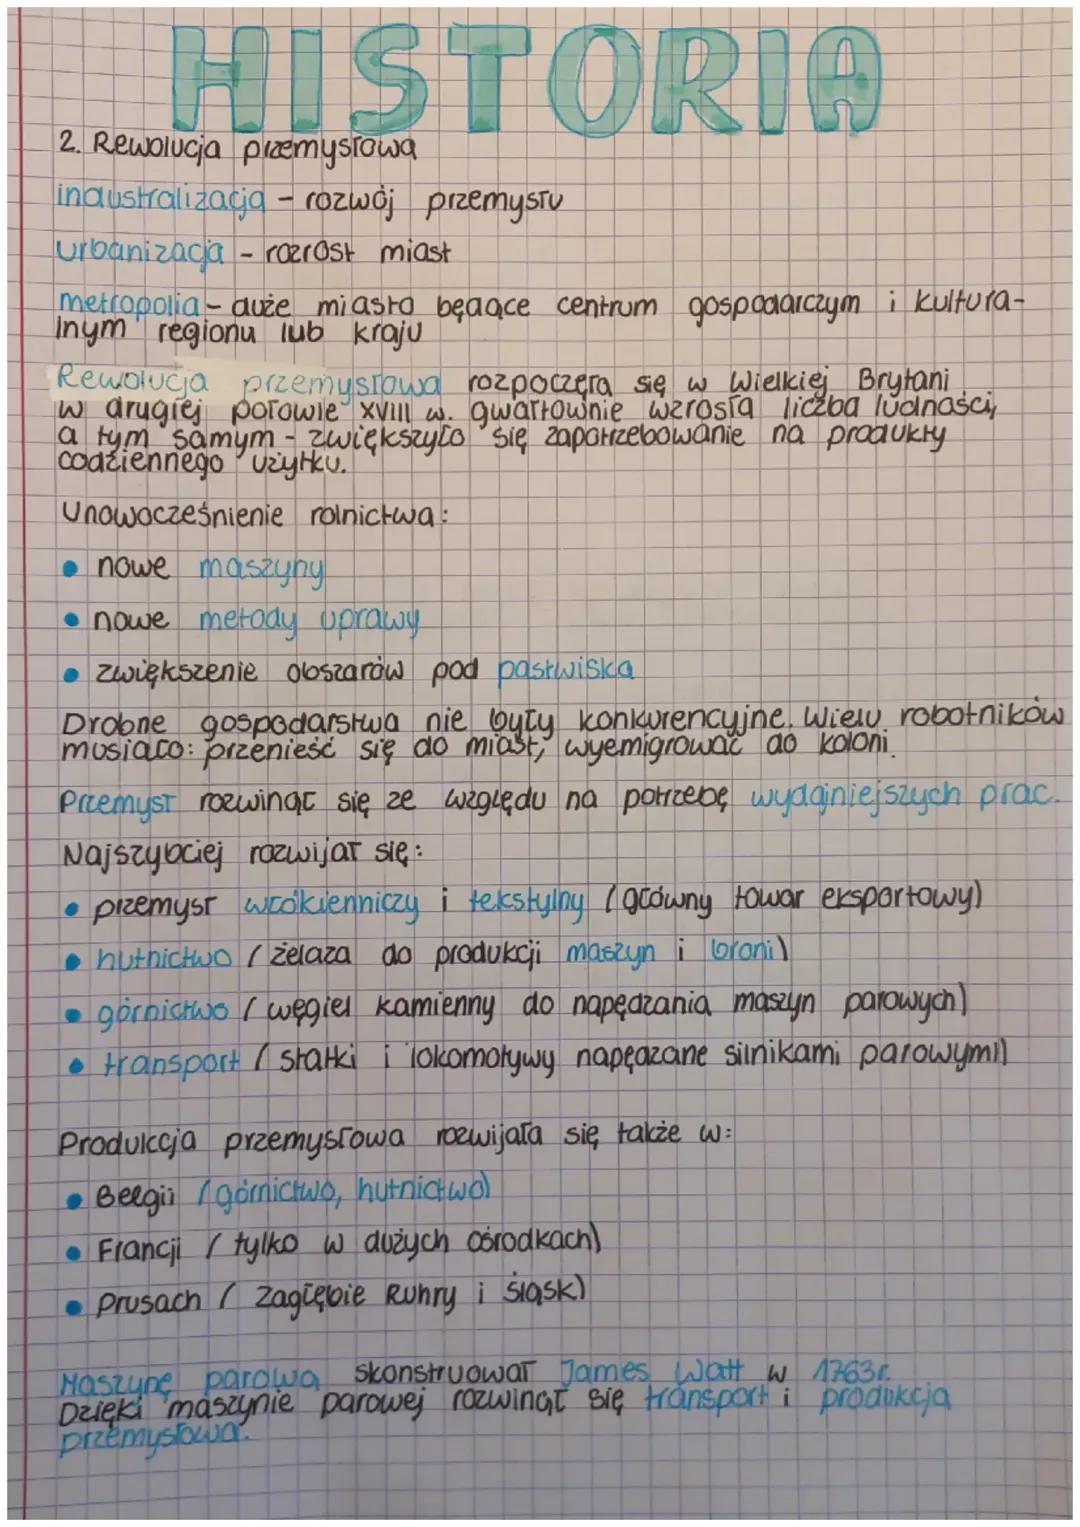 HISTORIA
2. Rewolucja przemysłowa
industralizacja - rozwój przemysłu
urbanizacja - rozrost miast
metropolia - duże miasto będące centrum gospodarczym i kultura-
lnym regionu lub kraju
Rewolucja przemysłowa rozpoczęła się w Wielkiej Brytani
w drugiej połowie XVIII w. gwałtownie wzrosła liczba ludności,
a tym samym - zwiększyło się zapotrzebowanie na produkty
codziennego użytku.
Unowocześnienie rolnictwa:
• nowe maszyny
• nowe metody uprawy
• zwiększenie obszarów pod pastwiska
Drobne gospodarstwa nie były konkurencyjne. Wielu robotników
musiało: przenieść się do miast, wyemigrować do koloni.
Przemysł rozwinął się ze względu na potrzebę wydajniejszych prac.
Najszybciej rozwijał się:
• przemysł włókienniczy i tekstylny (główny towar eksportowy)
• hutnictwo (żelaza do produkcji maszyn i broni)
• górnictwo (węgiel kamienny do napędzania maszyn parowych)
• transport (statki i lokomotywy napędzane silnikami parowymi)
Produkcja przemysłowa rozwijała się także w:
• Belgii (górnictwo, hutnictwo)
• Francji (tylko w dużych ośrodkach)
• Prusach (Zagłębie Ruhry i Śląsk)
Maszynę parową skonstruował James Watt w 1763r.
Dzięki maszynie parowej rozwinął się transport i produkcja
przemysłowa.